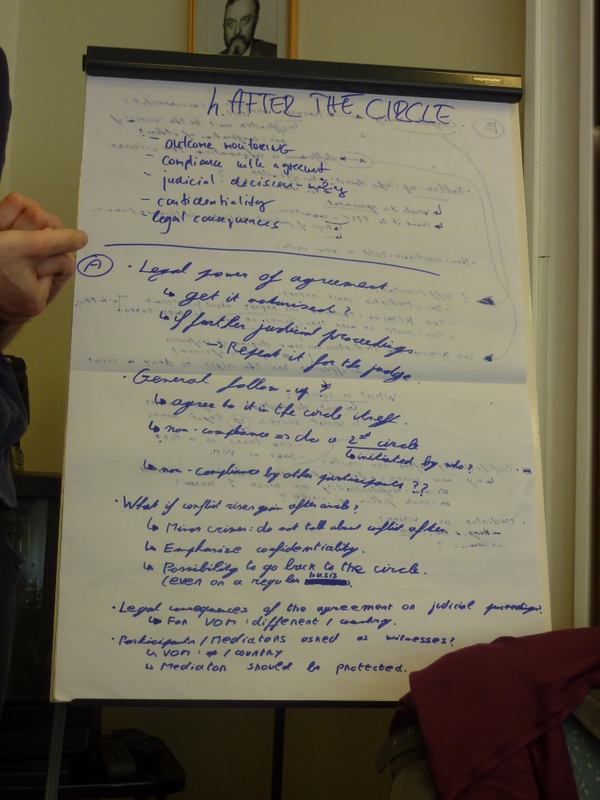 h. AFTER THE CIRCLE
B
- outcome monitoring
- compliance with agreement
- judicial decision-making
- confidentiality
- legal consequences
A
· Legal power of agreement.
↳ get it notarised?
↳ if further judicial proceedings
→ Repeat it for the judge.
· General follow-up?
↳ agree to it in the circle itself.
↳ non-compliance => do a 2nd circle
↳ initiated by who?
↳ non-compliance by other participants??
· What if conflict rises again after circle?
↳ Minor crimes: do not talk about conflict after
↳ Emphasise confidentiality.
↳ Possibility to go back to the circle.
(even on a regular basis).
· Legal consequences of the agreement on judicial proceedings?
↳ For VOM: different / country.
· Participants / Mediators asked as witnesses?
↳ VOM: ≠ / country
↳ Mediator should be protected.